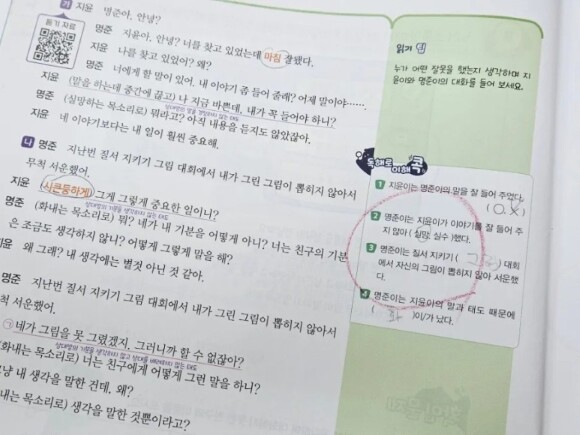 가 지윤 명준아, 안녕?
듣기 자료
명준 지윤아. 안녕? 너를 찾고 있었는데 마침 잘됐다.
지윤 나를 찾고 있었어? 왜?
명준 너에게 할 말이 있어. 내 이야기 좀 들어 줄래? 어제 말이야……
지윤 (말을 하는데 중간에 끊고) 나 지금 바쁜데, 내가 꼭 들어야 하니?
명준 (실망하는 목소리로) 뭐라고? 아직 내용을 듣지도 않았잖아.
지윤 네 이야기보다는 내 일이 훨씬 중요해.
나 명준 지난번 질서 지키기 그림 대회에서 내가 그린 그림이 뽑히지 않아서
무척 서운했어.
지윤 (시큰둥하게) 그게 그렇게 중요한 일이니?
명준 (화내는 목소리로) 뭐? 네가 내 기분을 어떻게 아니? 너는 친구의 기분
은 조금도 생각하지 않니? 어떻게 그렇게 말을 해?
지윤 왜 그래? 내 생각에는 별것 아닌 것 같아.
명준 지난번 질서 지키기 그림 대회에서 내가 그린 그림이 뽑히지 않아서
무척 서운했어.
㉠ 네가 그림을 못 그렸겠지. 그러니까 할 수 없잖아?
(화내는 목소리로) 너는 친구에게 어떻게 그런 말을 하니?
그냥 내 생각을 말한 건데, 왜?
(화내는 목소리로) 생각을 말한 것뿐이라고?
읽기
누가 어떤 잘못을 했는지 생각하며 지
윤이와 명준이의 대화를 들어 보세요.
독해로 이해 콕
1 지윤이는 명준이의 말을 잘 들어 주었다.
(O, X)
2 명준이는 지윤이가 이야기를 잘 들어 주
지 않아 (실망, 실수)했다.
3 명준이는 질서 지키기 (그림) 대회
에서 자신의 그림이 뽑히지 않아 서운했
다.
4 명준이는 지윤이의 말과 태도 때문에
(화)이/가 났다.